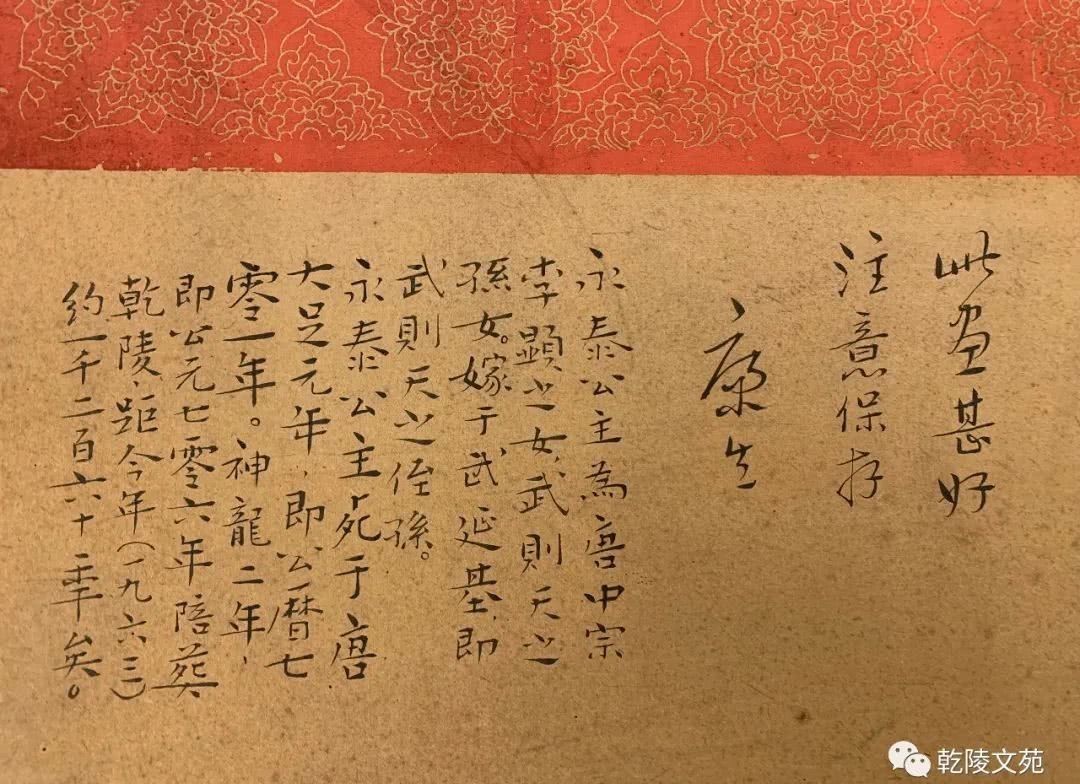 此畫甚好
注意保存
康生
永泰公主為唐中宗
李顯之女,武則天之
孫女。嫁于武延基,即
武則天之侄孫。
永泰公主,死于唐
大足元年,即公曆七
零一年。神龍二年,
即公元七零六年陪葬
乾陵,距今年(一九六三)
約一千二百六十年矣。
乾陵文苑